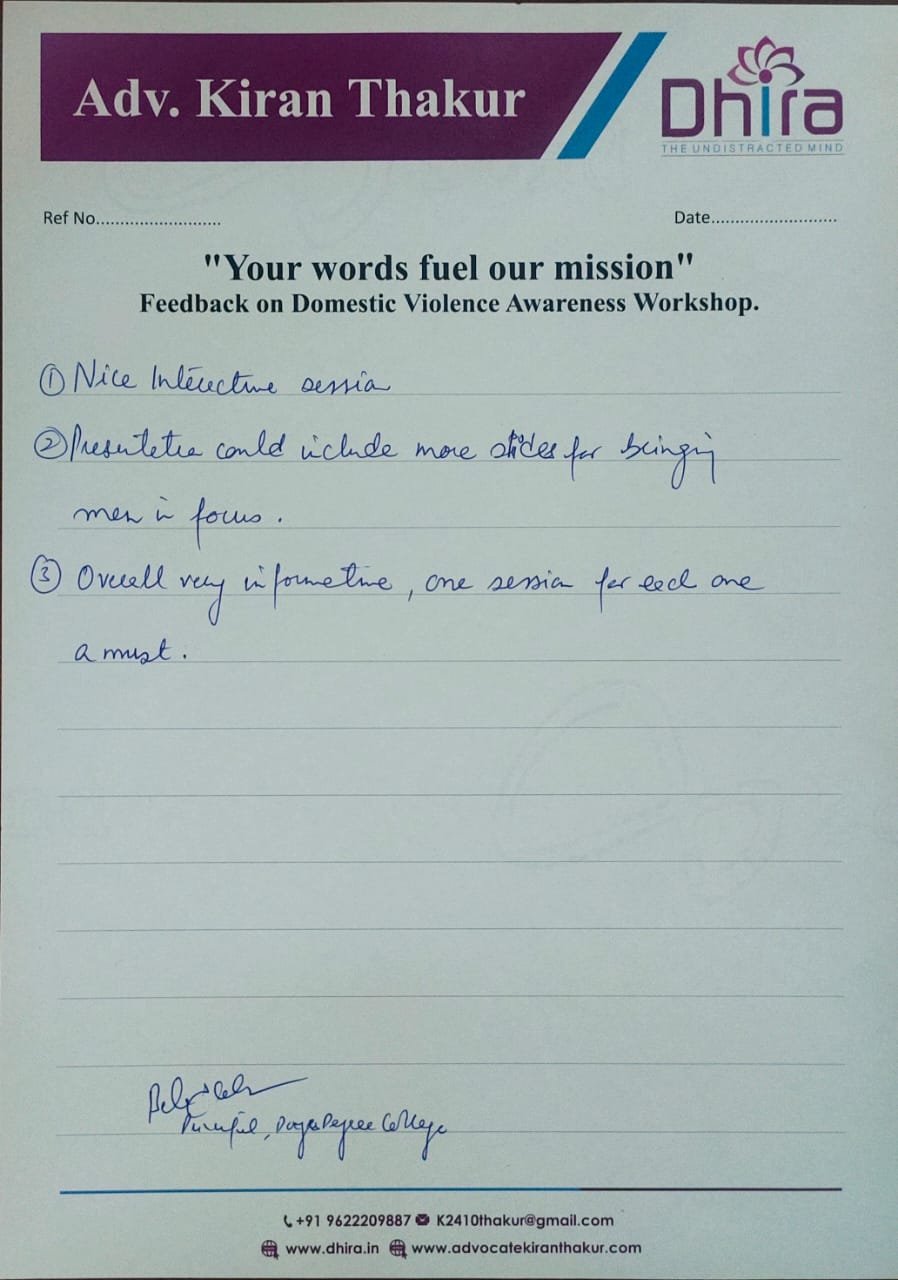 Adv. Kiran Thakur
Dhira
THE UNDISTRACTED MIND
Ref No..........................
Date..........................
"Your words fuel our mission"
Feedback on Domestic Violence Awareness Workshop.
① Nice Interective session
② Presentetion could include more slides for bringing
men in focus.
③ Overall very informative, one session for each one
a must.
Principal, Degree College
+91 9622209887 K2410thakur@gmail.com
www.dhira.in www.advocatekiranthakur.com